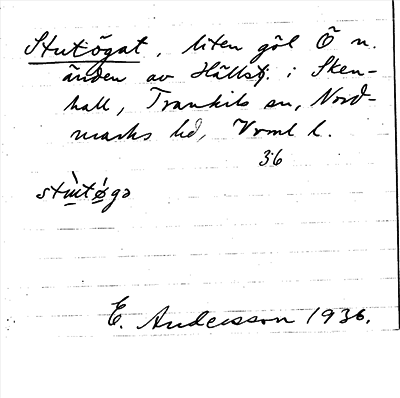 Stutögat, liten göl Ö n.
änden av Hällstj. i Sken-
hall, Trankils sn, Nord-
marks hd, Vrml l.
36
stùtǿgə
E. Andersson 1936.